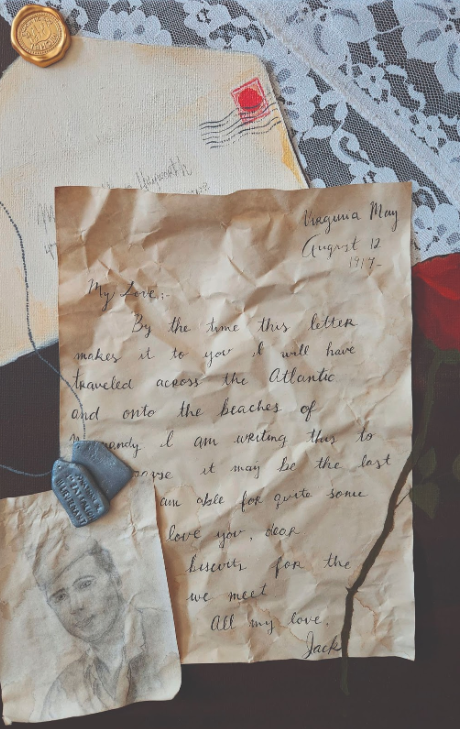 Hayworth
Virginia May
August 12
1917-
My Love:-
By the time this letter
makes it to you I will have
traveled across the Atlantic
and onto the beaches of
I am writing this to
it may be the last
am able for quite some
love you, dear
biscuits for the
we meet
All my love,
Jack